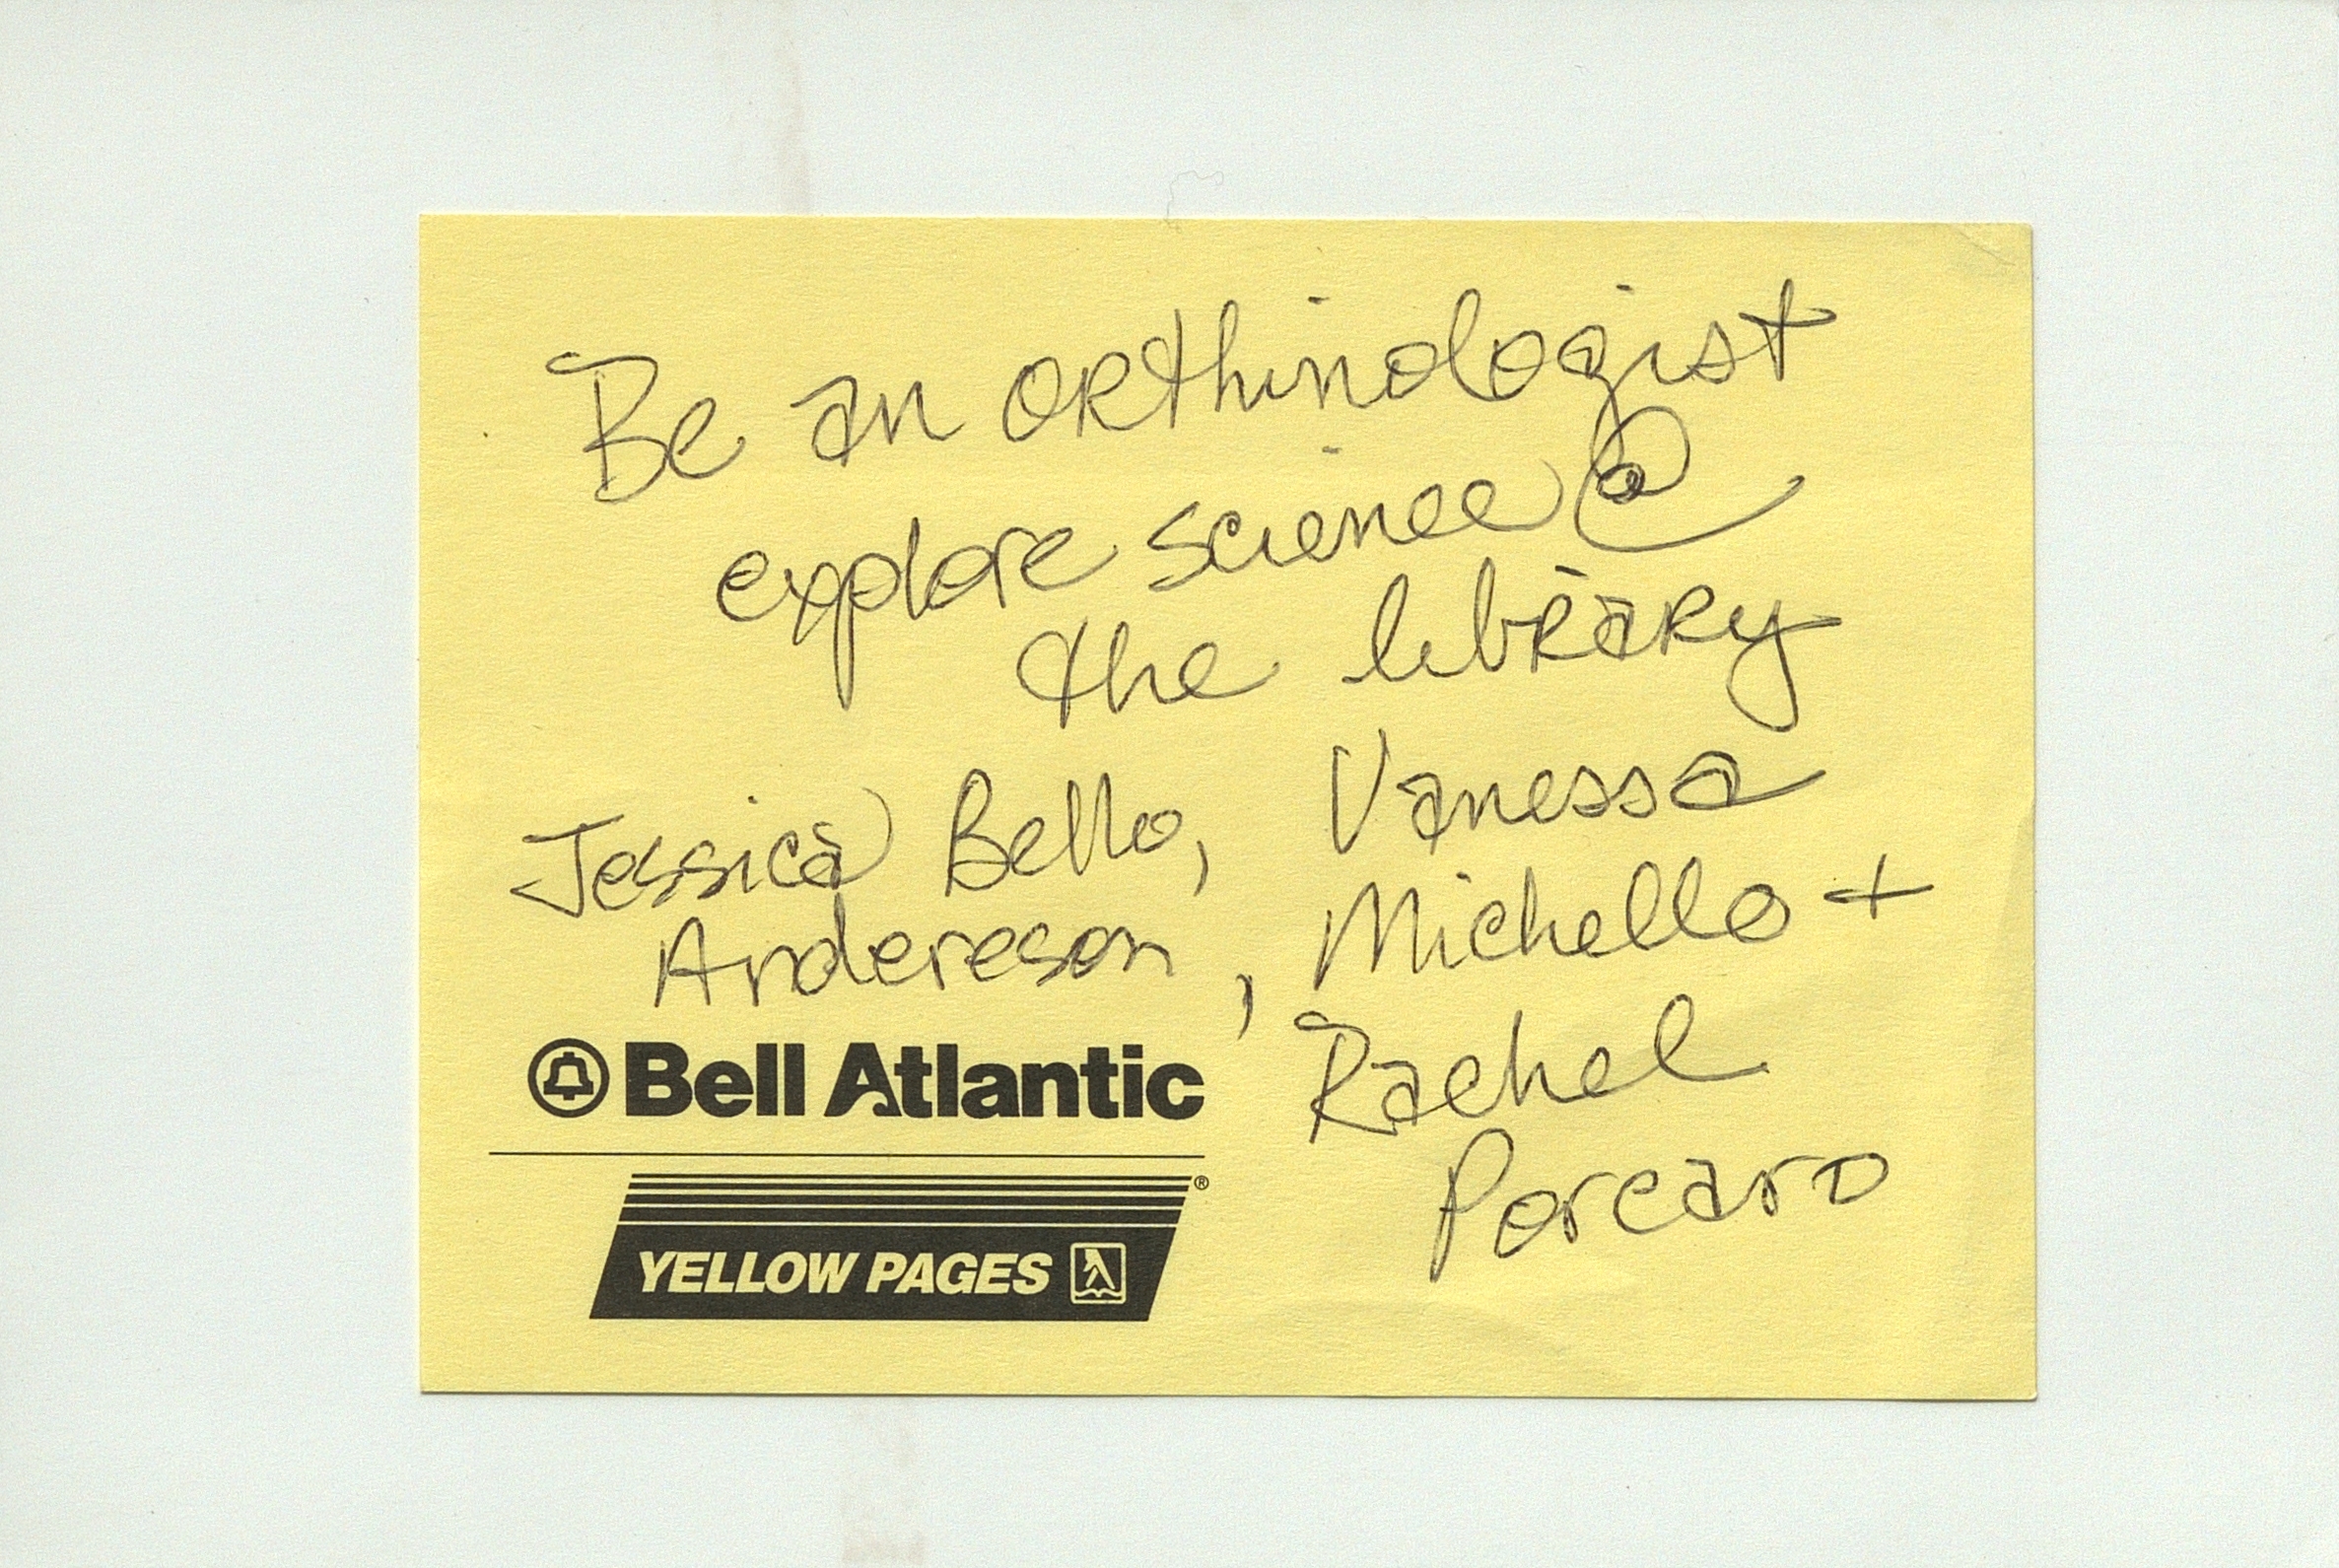 Be an orthinologist
explore science @
the library
Jessica Bello, Vanessa
Andereson, Michello +
Rachel
Porcaro
Bell Atlantic
YELLOW PAGES ®